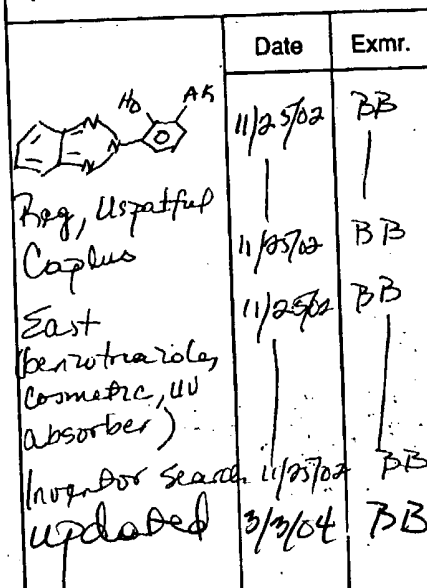 Date Exmr.
HO AK
N N N 11/25/02 BB
Reg, Uspatful
Caplus 11/25/02 BB
East 11/25/02 BB
(benzotriazoles,
cosmetic, UV
absorber)
Inventor search 11/25/02 BB
updated 3/3/04 BB